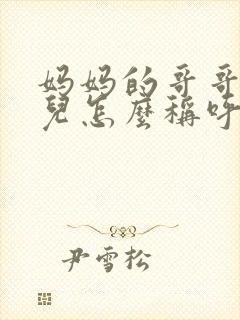 妈妈的哥哥
兒怎麼稱呼
尹雪松